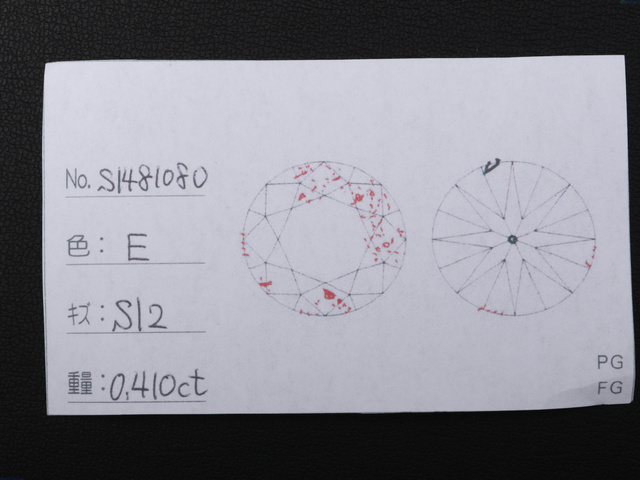 No. S1481080
色: E
キズ: SI2
重量: 0,410ct
PG
FG